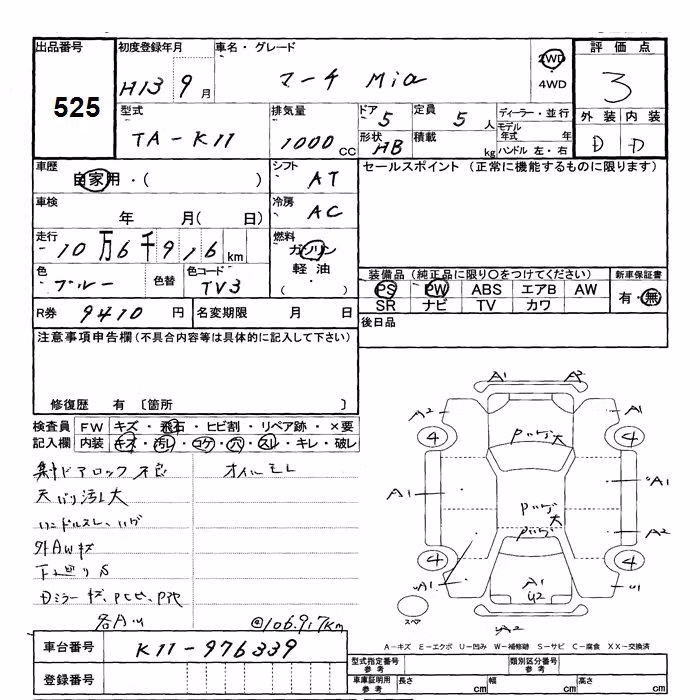 出品番号 初度登録年月 車名・グレード 2WD 評価点
525 H13 9月 マーチ Mia 4WD 3
型式 排気量 ドア 定員 ディーラー・並行 外装 内装
TA-K11 1000cc 5 5人 モデル年式 年 D D
形状 HB 積載 kg ハンドル 左・右
車歴 自家用・( ) シフト AT セールスポイント (正常に機能するものに限ります)
車検 年 月( 日) 冷房 AC
走行 10万6千916km 燃料 ガソリン
軽油
( ・ )
色 ブルー 色替 色コード TV3
装備品(純正品に限り○をつけてください) 新車保証書
PS PW ABS エアB AW 有・無
SR ナビ TV カワ
R券 9410円 名変期限 月 日 後日品
注意事項申告欄(不具合内容等は具体的に記入して下さい)
修復歴 有 〔箇所 〕
検査員 FW キズ・飛石・ヒビ割・リペア跡・×要
記入欄 内装 キズ・汚レ・コゲ・穴・スレ・キレ・破レ
集中ドアロック不良 オイルモレ
天バリ汚レ大
ハンドルスレ、ハゲ
外AWキズ
下廻りS
各AU @106,917km
A1 A2
A2 A1
4 4
ハゲ大
A1 A1
ハゲ大
A2
ハゲ
4 4
A1 A1 U1
U2
スペア A2
車台番号 K11-976339
A-キズ E-エクボ U-凹み W-補修跡 S-サビ C-腐食 XX-交換済
登録番号
型式指定番号 参考 類別区分番号 参考
車庫証明用 参考 長さ cm 幅 cm 高さ cm